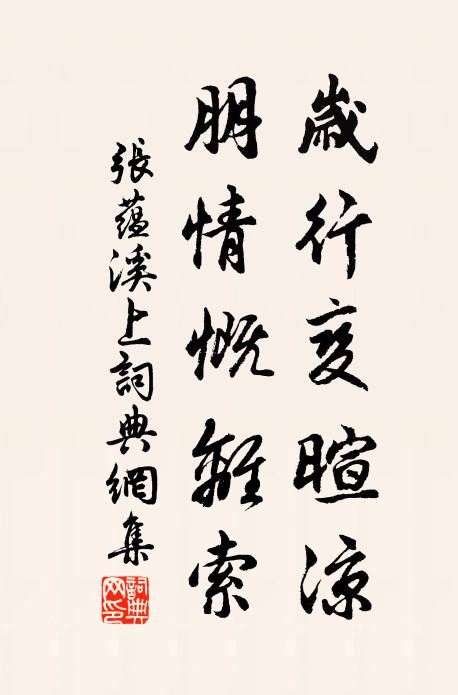 歲行变暄涼
朋情慨離索
張蘊溪上詞典網集
詞典网印